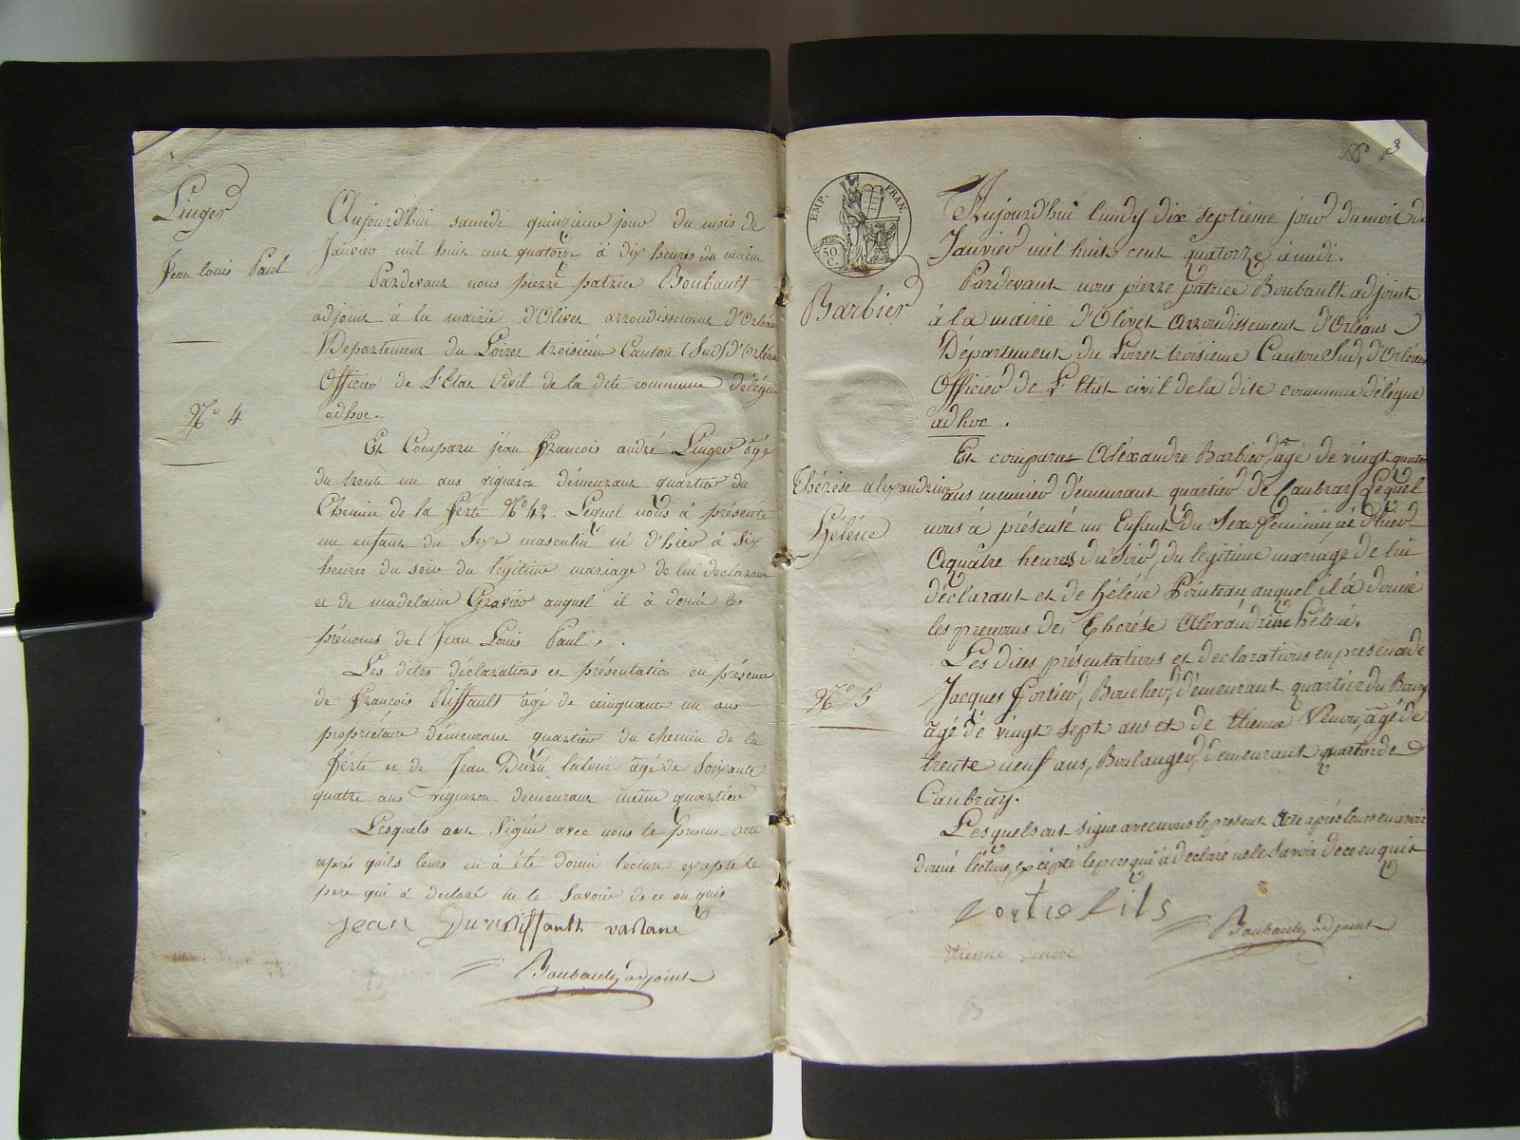 Linger
Jean louis Paul
N.o 4
Aujourd'hui samedi quinzieme jour du mois de
Janvier mil huit cent quatorze à dix heures du matin
Pardevant nous pierre patrice Boubault
adjoint à la mairie d'Olivet arrondissement d'Orléans
Departement du Loiret troisiém Canton (Sud) d'Orléans
Officier de l'Etat Civil de la dite commune délégué
adhoc.
Et Comparu jéan françois andré Linger âgé
de trente un ans vigneron démeurant quartier du
Chemin de la ferté N.o 42. Lequel nous à présenté
un enfant du Sexe masculin né d'hier à Six
heures du soir du légitime mariage de lui declarant
et de madelaine Gravier auquel il à donné les
prénoms de Jean Louis Paul.
Les dites déclarations et présentation en présence
de françois Riffault âgé de cinquante un ans
propriétaire demeurant quartier du chemin de la
ferté et de Jean Duru âgé de Soixante
quatre ans vigneron demeurant même quartier
Lesquels ont Signé avec nous le présent acte
après quils leurs en à été donné lecture excepté le
pere qui à declaré ne le Savoir de ce enquis
jean Duru Riffault
Boubault adjoint
3
EMP. FRAN.
50
C.
Barbier
Thérèse alexandrine
Hélène
N.o 5
Aujourd'hui lundy dix septieme jour du mois de
Janvier mil huit cent quatorze à midi.
Pardevant nous pierre patrice Boubault adjoint
à la mairie d'Olivet Arrondissement d'Orléans
Département du Loiret troisieme Canton Sud, d'Orléans
Officier de L'Etat civil de la dite commune délégué
adhoc.
Et comparu Alexandre Barbier âgé de vingt quatre
ans meunier démeurant quartier de Caubray Lequel
nous à présenté un Enfant du Sexe féminin né d'hier
à quatre heures du soir, du légitime mariage de lui
déclarant et de Hélène Pointeau auquel il à donné
les prenoms de Thérése Aléxandrine Héléne.
Les dites présentations et declarations en presence de
Jacques Fortier, Boucher, démeurant quartier du Bourg
âgé de vingt sept ans et de Etienne Venon, âgé de
trente neuf ans, Boulanger, demeurant quartier de
Caubray.
Lesquels ont signé avec nous le present Acte après leur en avoir
donné lecture, excepté le pere qui à declaré ne le Savoir de ce enquis
fortie fils
Boubault adjoint
Etienne